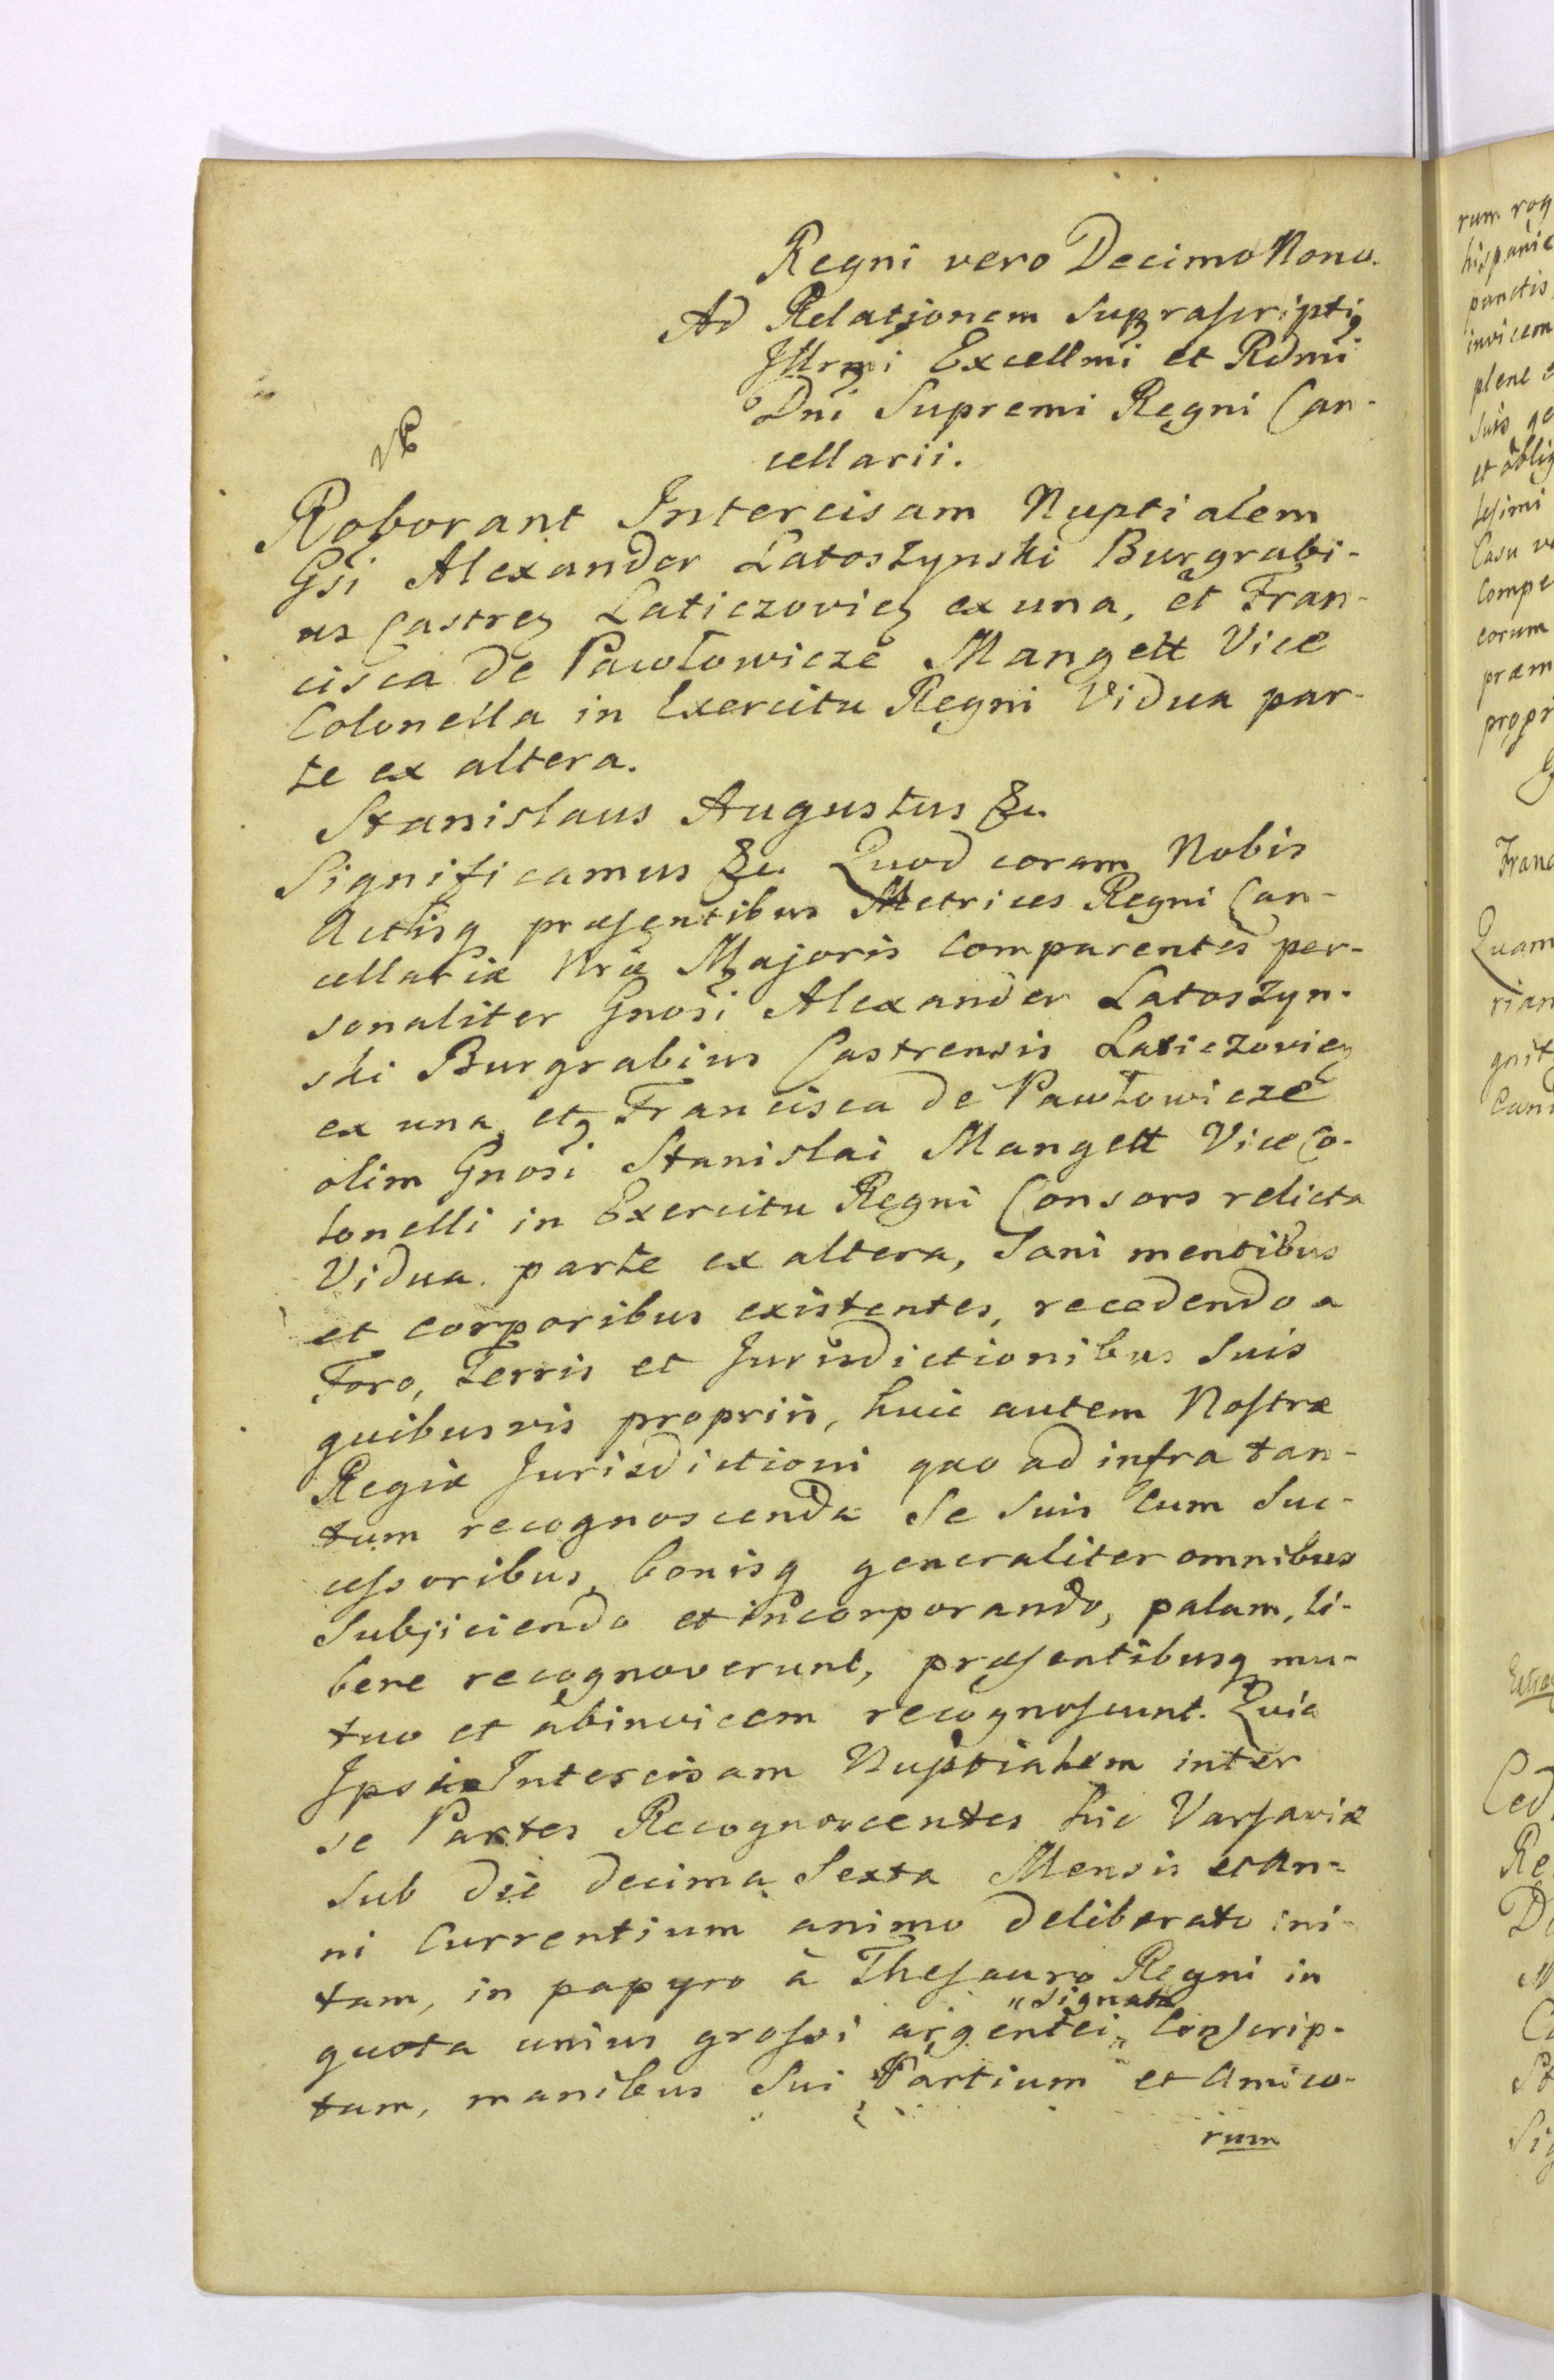 Regni vero Decimo Nono.
Ad Relationem Suprascripti
Jllrmi Excellmi et Rdmi
Dni Supremi Regni Can-
cellarii.
Roborant Intercisam Nuptialem
Gsi Alexander Latoszynski Burgrabi-
us Castren Laticzovien ex una, et Fran-
cisca de Pawłowicze Mangett Vice
Colonella in Exercitu Regni Vidua par-
te ex altera.
Stanislaus Augustus &c.
Significamus &c. Quod coram Nobis
Actisq præsentibus Metrices Regni Can-
cellariæ Nræ Majoris Comparentes per-
sonaliter Gnosi Alexander Latoszyn-
ski Burgrabius Castrensis Laticzovien
ex una et Francisca de Pawłowicze
olim Gnosi Stanislai Mangett Vice Co-
lonelli in Exercitu Regni Consors relicta
Vidua parte ex altera, Sani mentibus
et corporibus existentes, recedendo a
Foro, Terris et Jurisdictionibus Suis
quibusvis propriis, huic autem Nostræ
Regiæ Jurisdictioni quo ad infra tan-
tum recognoscenda Se Suis Cum Suc-
cessoribus, bonisq generaliter omnibus
Subjiciendo et incorporando, palam, li-
bere recognoverunt, præsentibusq mu-
tuo et abinvicem recognoscunt. Quia
Ipsi Intercisam Nuptialem inter
se Partes Recognoscentes hic Varsaviæ
Sub die decima Sexta Mensis et An-
ni Currentium animo deliberato ini-
tam, in papyro à Thesauro Regni in
quota unius grossi argentei signata Conscrip-
tam, manibus Sui Partium et Amico-
rum
rum rog
hispanic
punctis
invicem
plene
Suis
et oblig
Casu
Compe
eorum
præm
propr
Franc
Quam
rian
gnit
Ced
Re